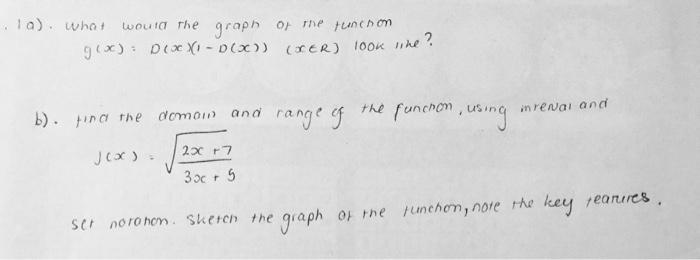 1a). what would the graph of the function
g(x) = D(x)(1 - D(x)) (x∈R) look like?
b). find the domain and range of the function, using interval and
J(x) = √((2x + 7)/(3x + 5))
set notation. Sketch the graph of the function, note the key features.